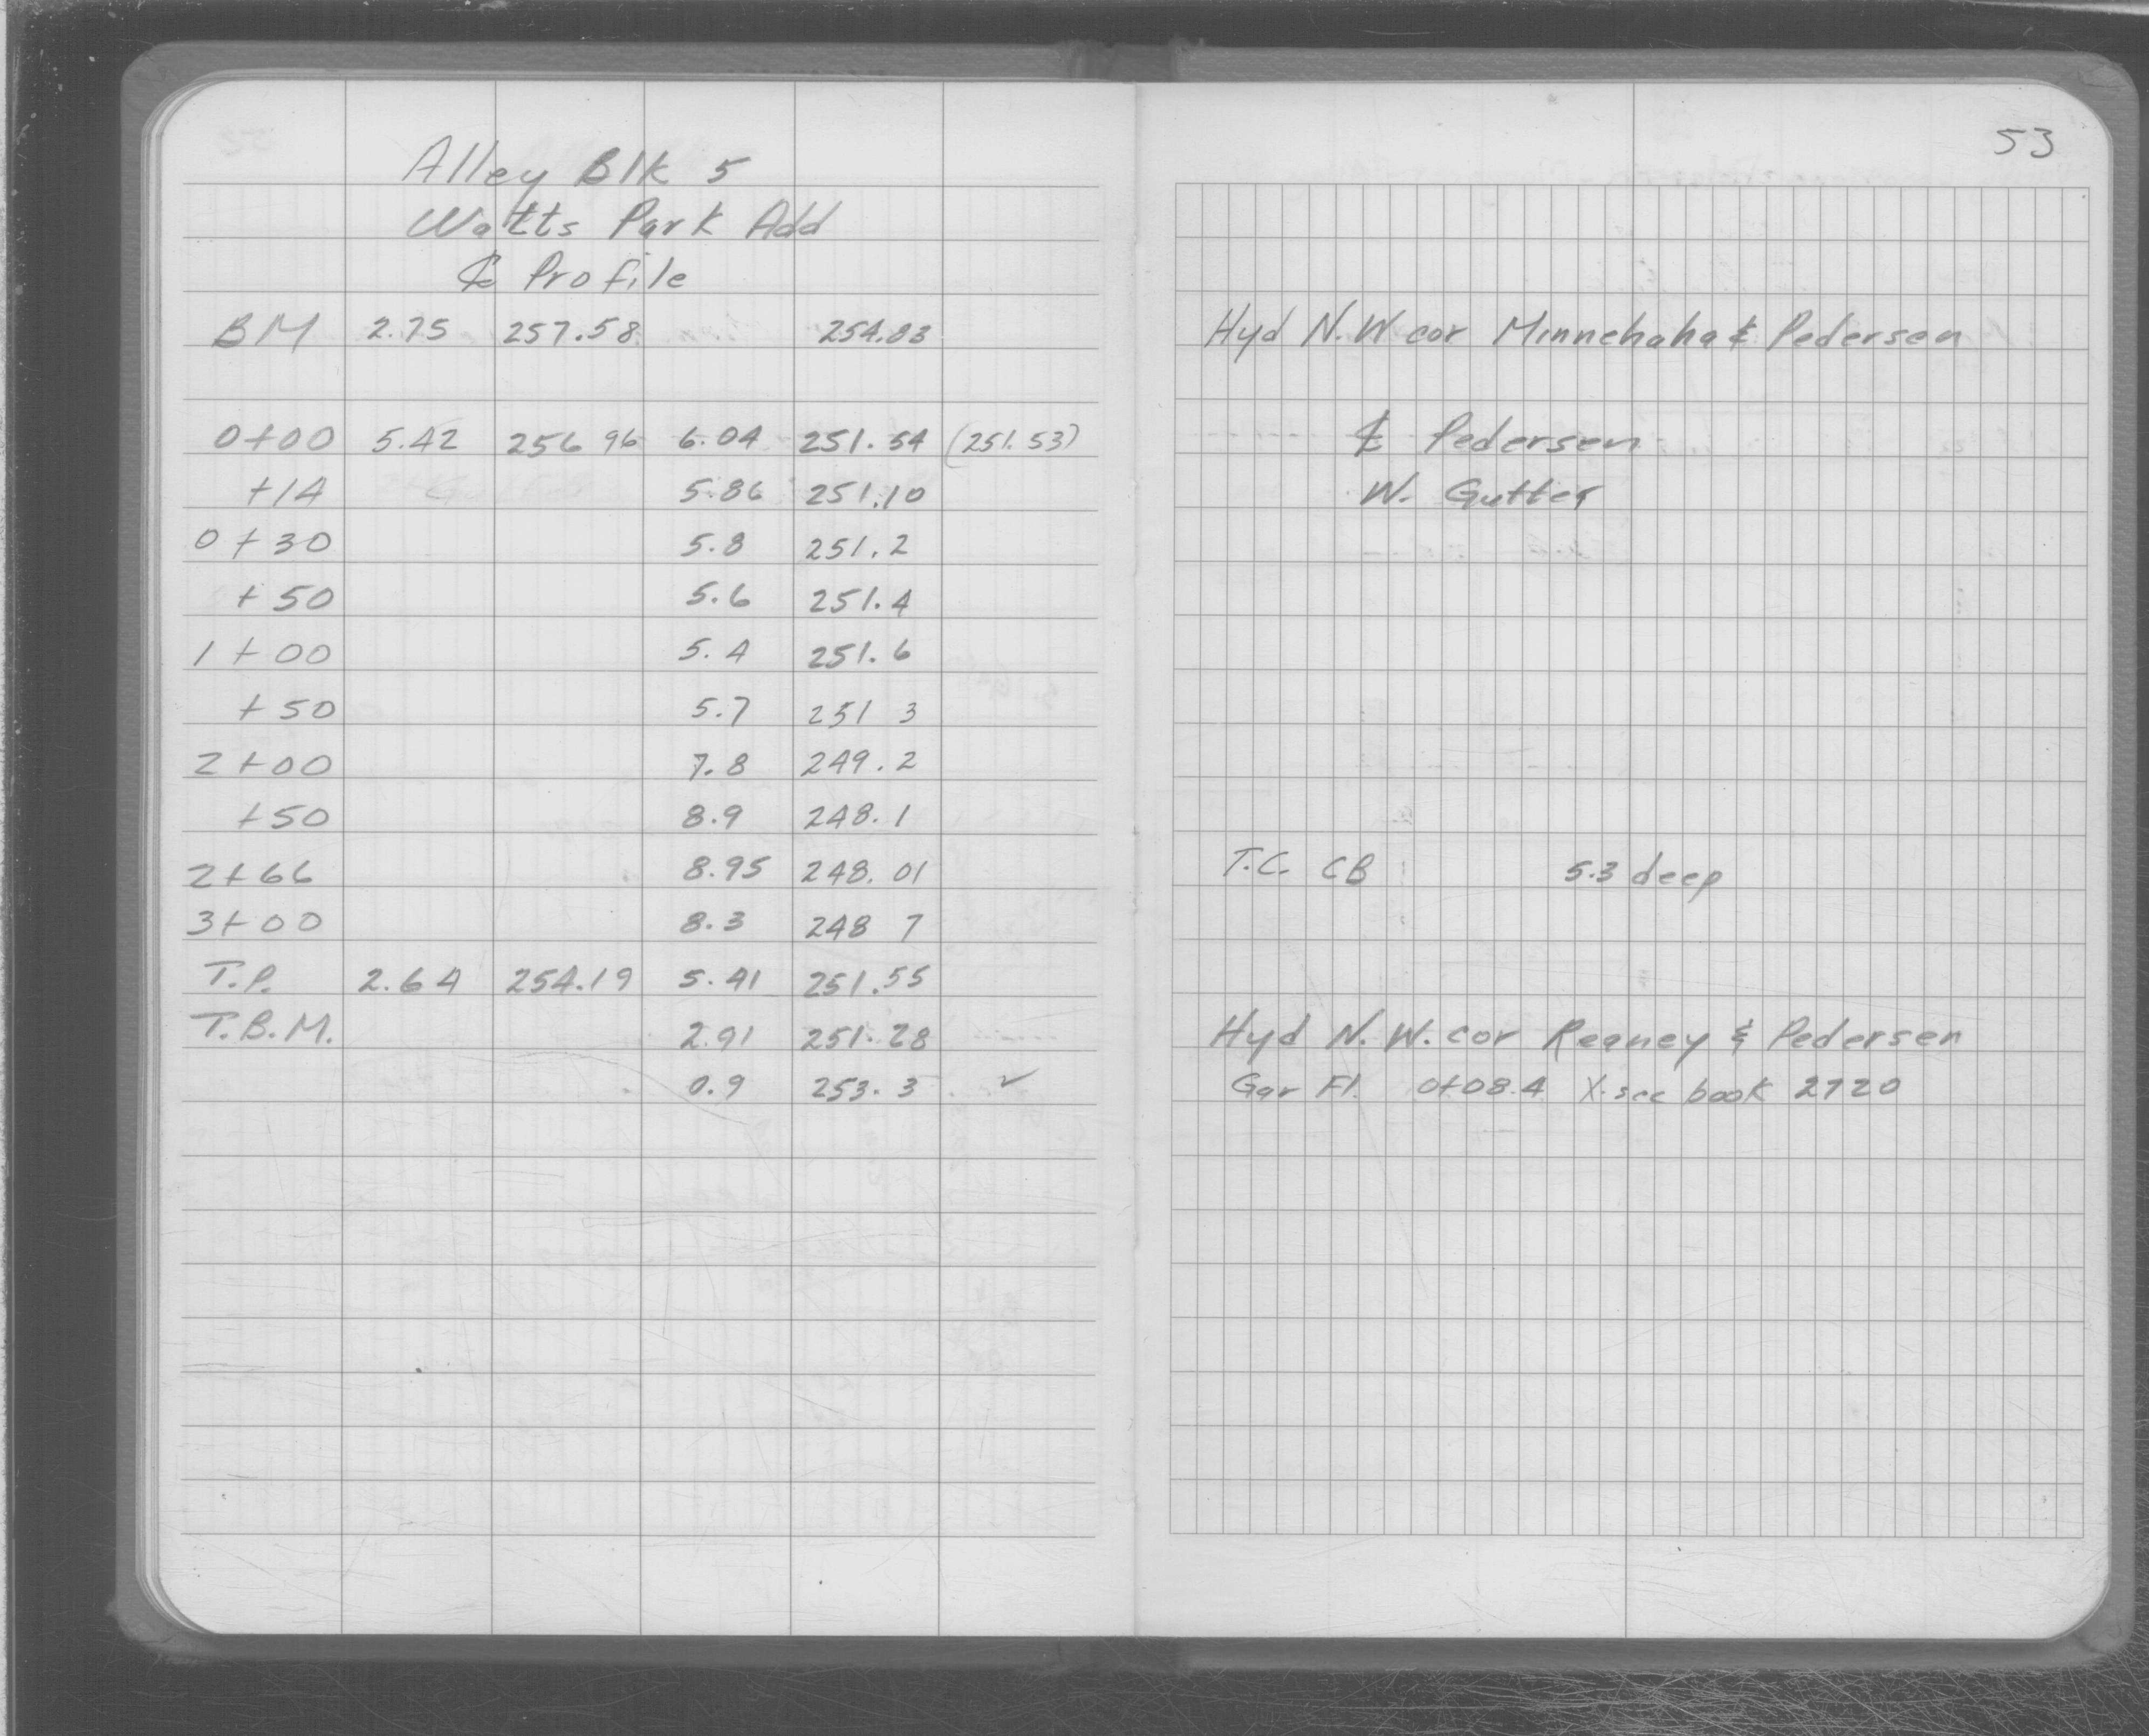 53
Alley Blk 5
Watts Park Add
℄ Profile
BM 2.75 257.58 254.83 Hyd N.W cor Minnehaha & Pedersen
0+00 5.42 256 96 6.04 251.54 (251.53) ℄ Pedersen
+14 5.86 251.10 W. Gutter
0+30 5.8 251.2
+50 5.6 251.4
1+00 5.4 251.6
+50 5.7 251 3
2+00 7.8 249.2
+50 8.9 248.1
2+66 8.95 248.01 T.C. CB 5.3 deep
3+00 8.3 248 7
T.P. 2.64 254.19 5.41 251.55
T.B.M. 2.91 251.28 Hyd N.W. cor Reaney & Pedersen
0.9 253.3 ✓ Gar Fl. 0+08.4 X-sec book 2720